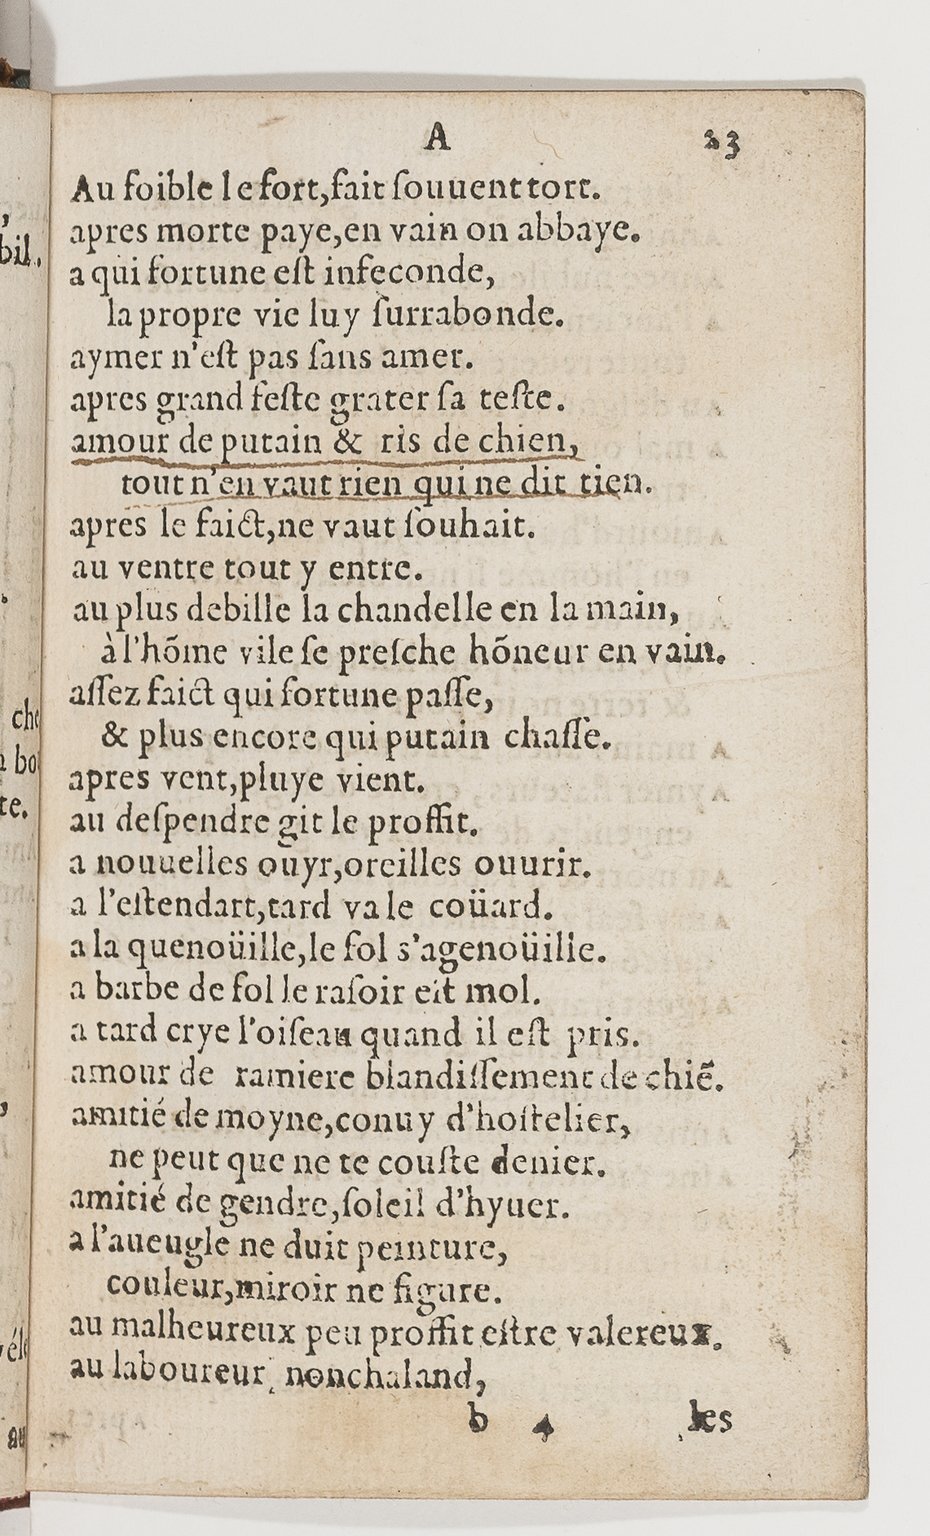 A 23
Au foible le fort,fait ſouuent tort.
apres morte paye,en vain on abbaye.
a qui fortune eſt infeconde,
la propre vie luy ſurrabonde.
aymer n'eſt pas ſans amer.
apres grand feſte grater ſa teſte.
amour de putain & ris de chien,
tout n'en vaut rien qui ne dit tien.
apres le faict,ne vaut ſouhait.
au ventre tout y entre.
au plus debille la chandelle en la main,
à l'hõme vile ſe preſche hõneur en vain.
aſſez faict qui fortune paſſe,
& plus encore qui putain chaſſe.
apres vent,pluye vient.
au deſpendre git le proffit.
a nouuelles ouyr,oreilles ouurir.
a l'eſtendart,tard va le coüard.
a la quenoüille,le fol s'agenoüille.
a barbe de fol le raſoir eſt mol.
a tard crye l'oiſeau quand il eſt pris.
amour de ramiere blandiſſement de chiẽ.
amitié de moyne,conuy d'hoſtelier,
ne peut que ne te couſte denier.
amitié de gendre,ſoleil d'hyuer.
a l'aueugle ne duit peinture,
couleur,miroir ne figure.
au malheureux peu proffit eſtre valereux.
au laboureur nonchaland,
b 4 les